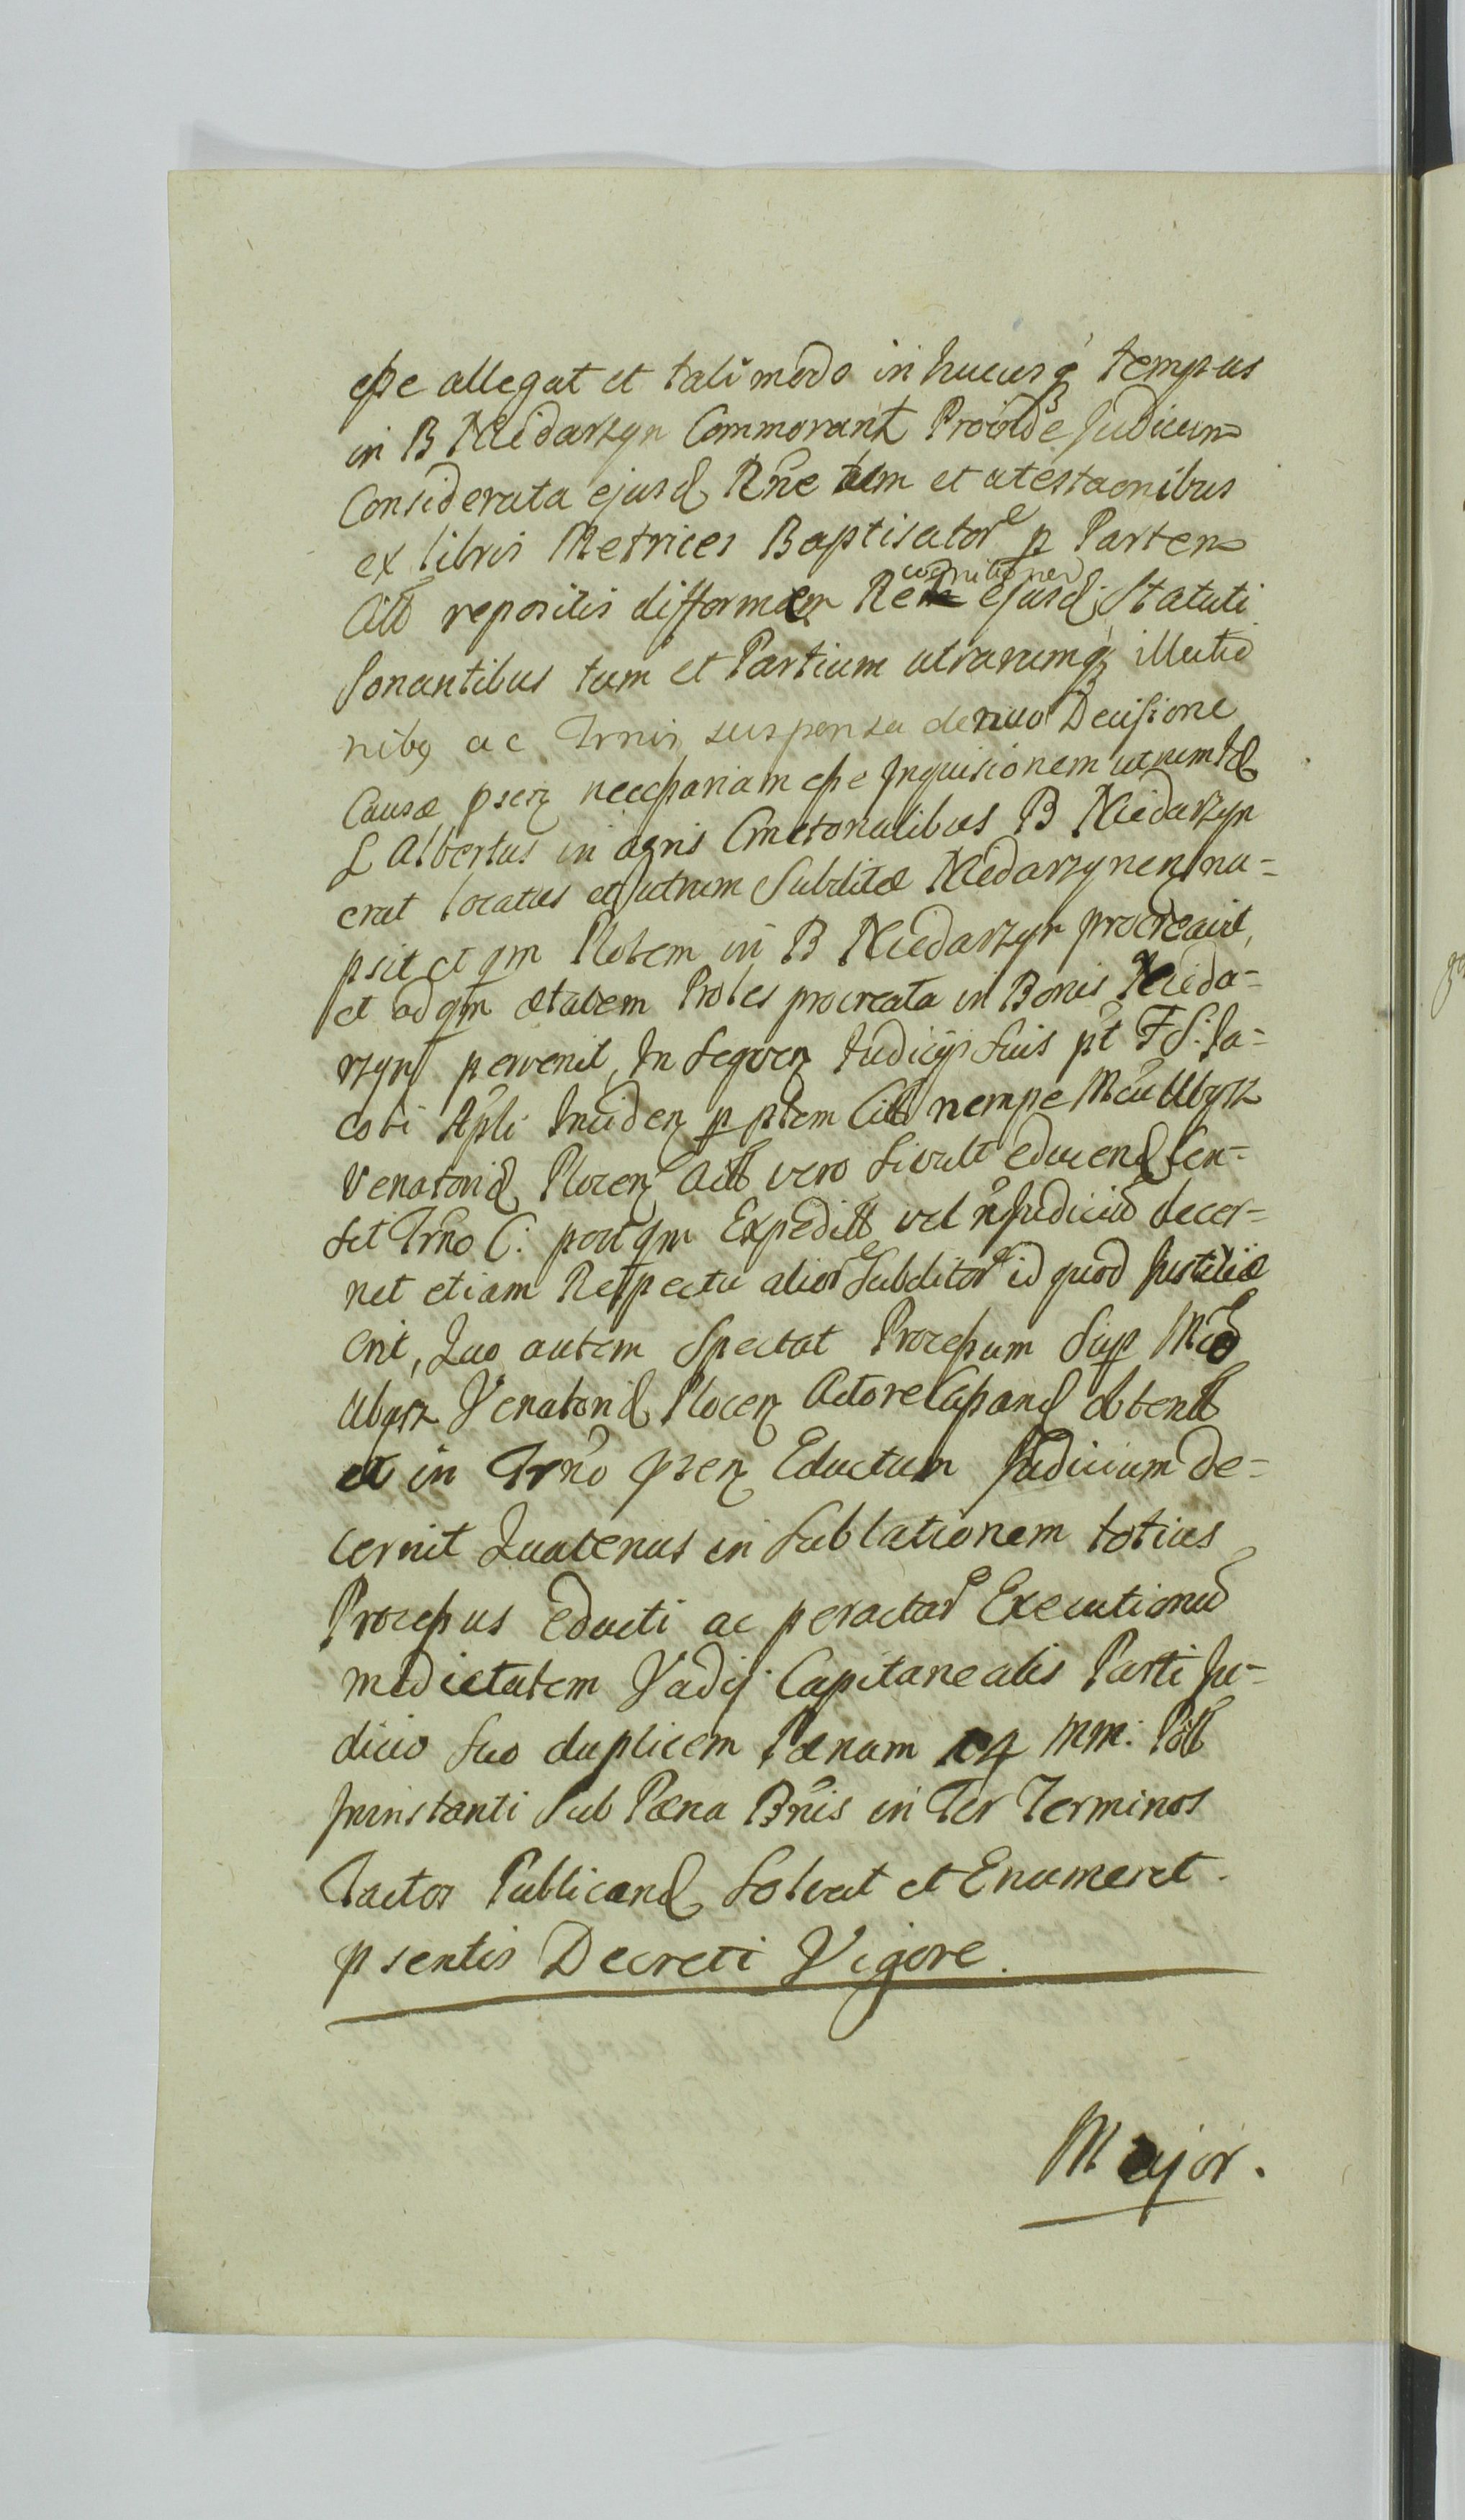 esse allegat et tali modo in hucusq tempus
in B Niedarzyn Commorant Proinde Judicium
Considerata ejusd Rne tum et atestaonibus
ex libris Metrices Baptisator p Partem
Citt repositis difformem cognitionem ejusd Statuti
Sonantibus tum et Partium utrarumq illatio
nibq ac Trnis suspensa denuo Decisione
Causæ psen necessariam esse Inquisionem utrum
L Albertus in agris Cmetonalibus B Niedarzyn
erat locatus et utrum Subditæ Niedarzynen nu-
psit et qm Prolem in B Niedarzyn procreavit,
et ad qm ætatem Proles procreata in Bonis Nieda-
rzyn pervenit, In Seqven Judicijs suis pt F S: Ja-
cobi Apli Inciden p ptem Citt nempe
Venatorid Plocen Actt vero si vult educend Cen-
set Trno C: post qm Expeditt vel Judiciu decer-
net etiam Respectu alior Subditor id quod Justitiæ
erit, Quo autem Spectat Processum Sup
Venatorid Plocen Actore obtentt
et in Trno psen Eductum Judicium de-
cernit Quatenus in Sublationem totius
Processus educti ac peractar Executionu
medietatem Vadij Capitanealis Parti Ju-
dicio suo duplicem Pænam 14 mm: Poll
Juinstanti Sub Pæna Bnis in Ter Terminos
Tactos Publicand Solvat et Enumeret.
psentis Decreti Vigore.
Major.